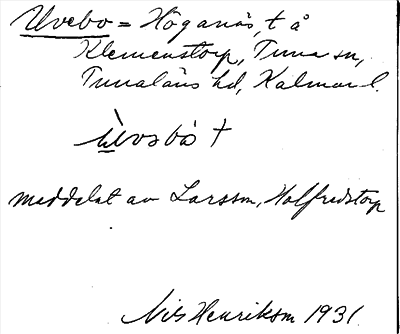 Uvebo = Höganäs, t å
Klemenstorp, Tuna sn,
Tunaläns hd, Kalmar l.
Ùvosbò †
meddelat av Larsson, Halfredstorp
Nils Henrikson 1931